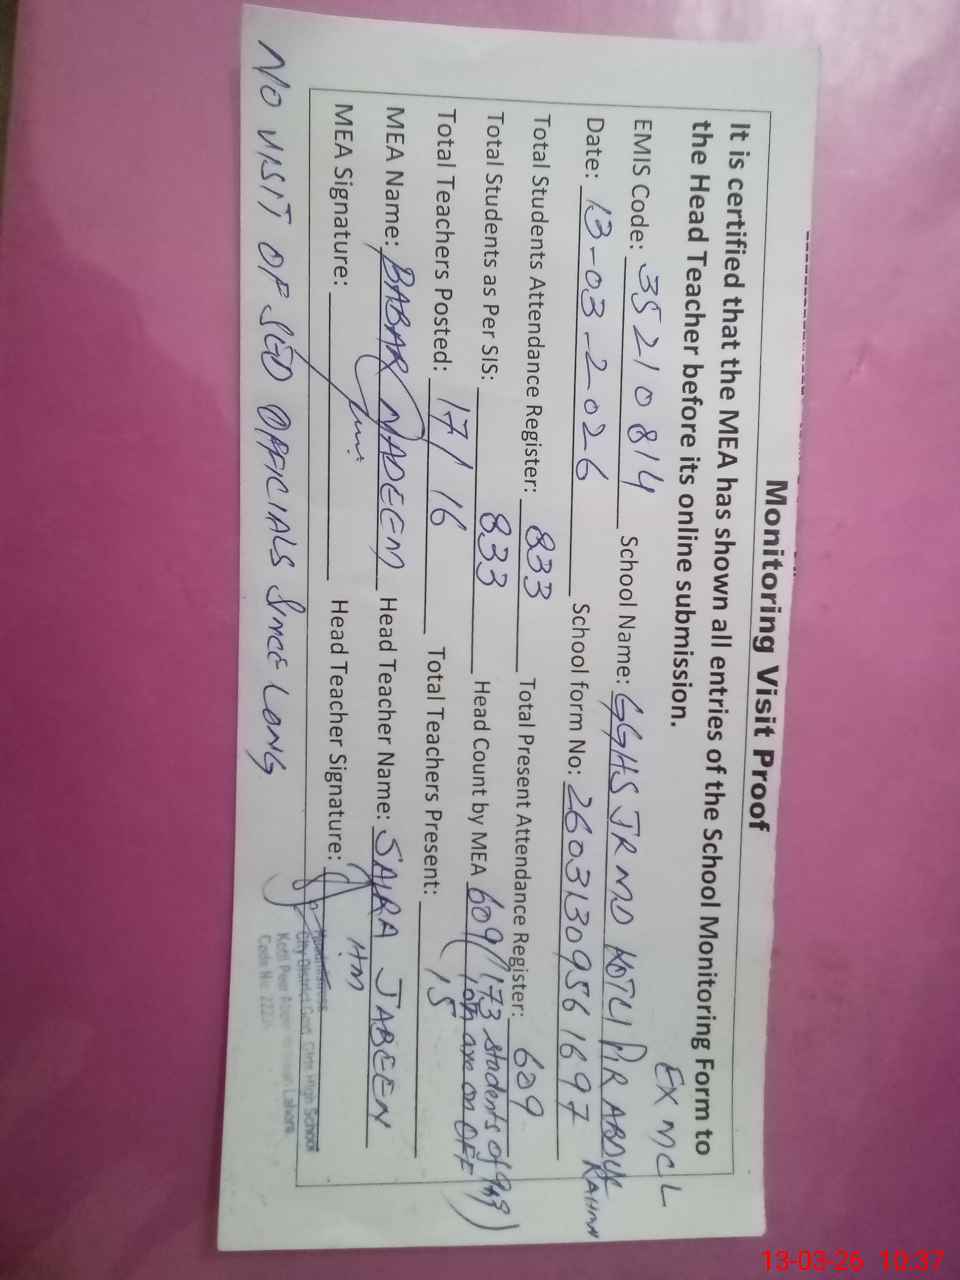 Monitoring Visit Proof
EX MCL
It is certified that the MEA has shown all entries of the School Monitoring Form to
the Head Teacher before its online submission.
EMIS Code: 35210814 School Name: GGHS JR MD KOTLI PIR ABDUR RAHMAN
Date: 13-03-2026 School form No: 2603130956 1697
Total Students Attendance Register: 833 Total Present Attendance Register: 609
Total Students as Per SIS: 833 Head Count by MEA 609 (173 students of 9th)
are on OFF
Total Teachers Posted: 17/16 Total Teachers Present: 15
MEA Name: BABAR NADEEM Head Teacher Name: SAIRA JABEEN
HM
MEA Signature: Head Teacher Signature:
City District Govt. Girls High School
Kotli Peer Lahore
Code No.
NO VISIT OF SED OFFICIALS SINCE LONG
13-03-26 10:37